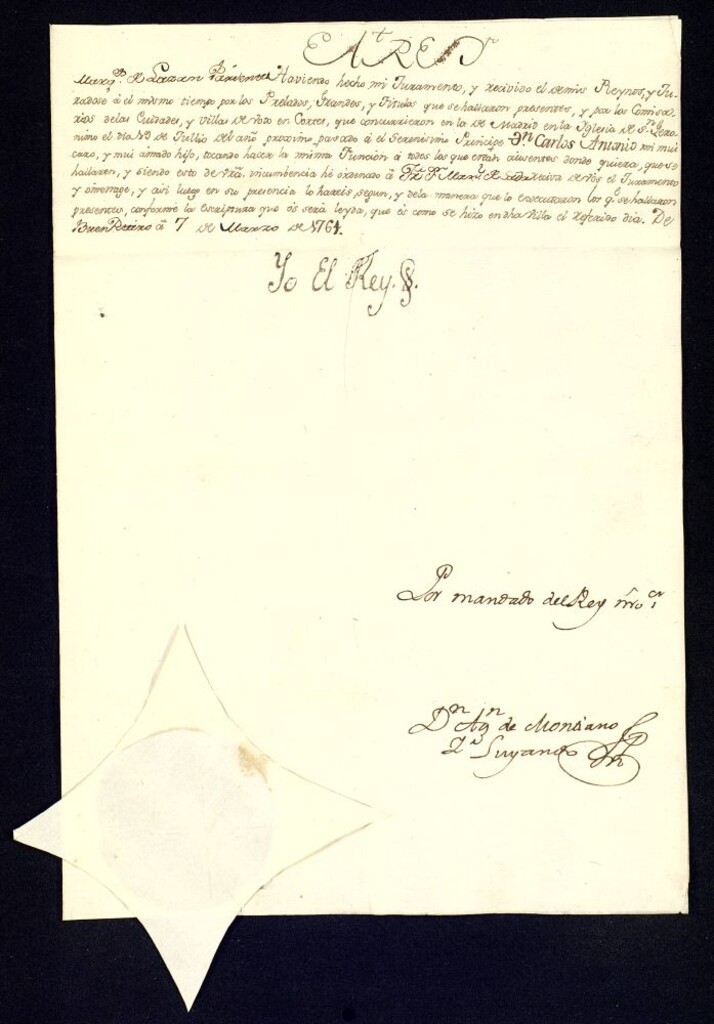 El Rey
Marq.s de Lazan Pariente Haviendo hecho mi Juramento, y recivido el de mis Reynos, y Ju-
radose â el mismo tiempo por los Prelados, Grandes, y Titulos que se hallaron presentes, y por los Comisa-
rios de las Ciudades, y Villas de Voto en Cortes, que concurrieron en la de Madrid en la Iglesia de S.n Gero-
nimo el dia de Jullio del año proximo pasado â el Serenisimo Principe D.n Carlos Antonio mi mui
caro, y mui amado hijo, tocando hacer la misma Funcion â todos los que están ausentes donde quiera, que se
hallaren, y siendo esto de incumbencia hé ordenado â reciva de Vos el Juramento
y omenage, y asi luego en su presencia lo hareis, segun, y de la manera que lo executaron los q.e se hallaron
presentes, conforme la escriptura que ôs será leyda, que ês como se hizo en dha Villa el referido dia. De
Buen Retiro â 7 de Marzo de 1761.
Yo El Rey.
Por mandado del Rey nro s.or
D.n Ag.n de Montiano
Luyando